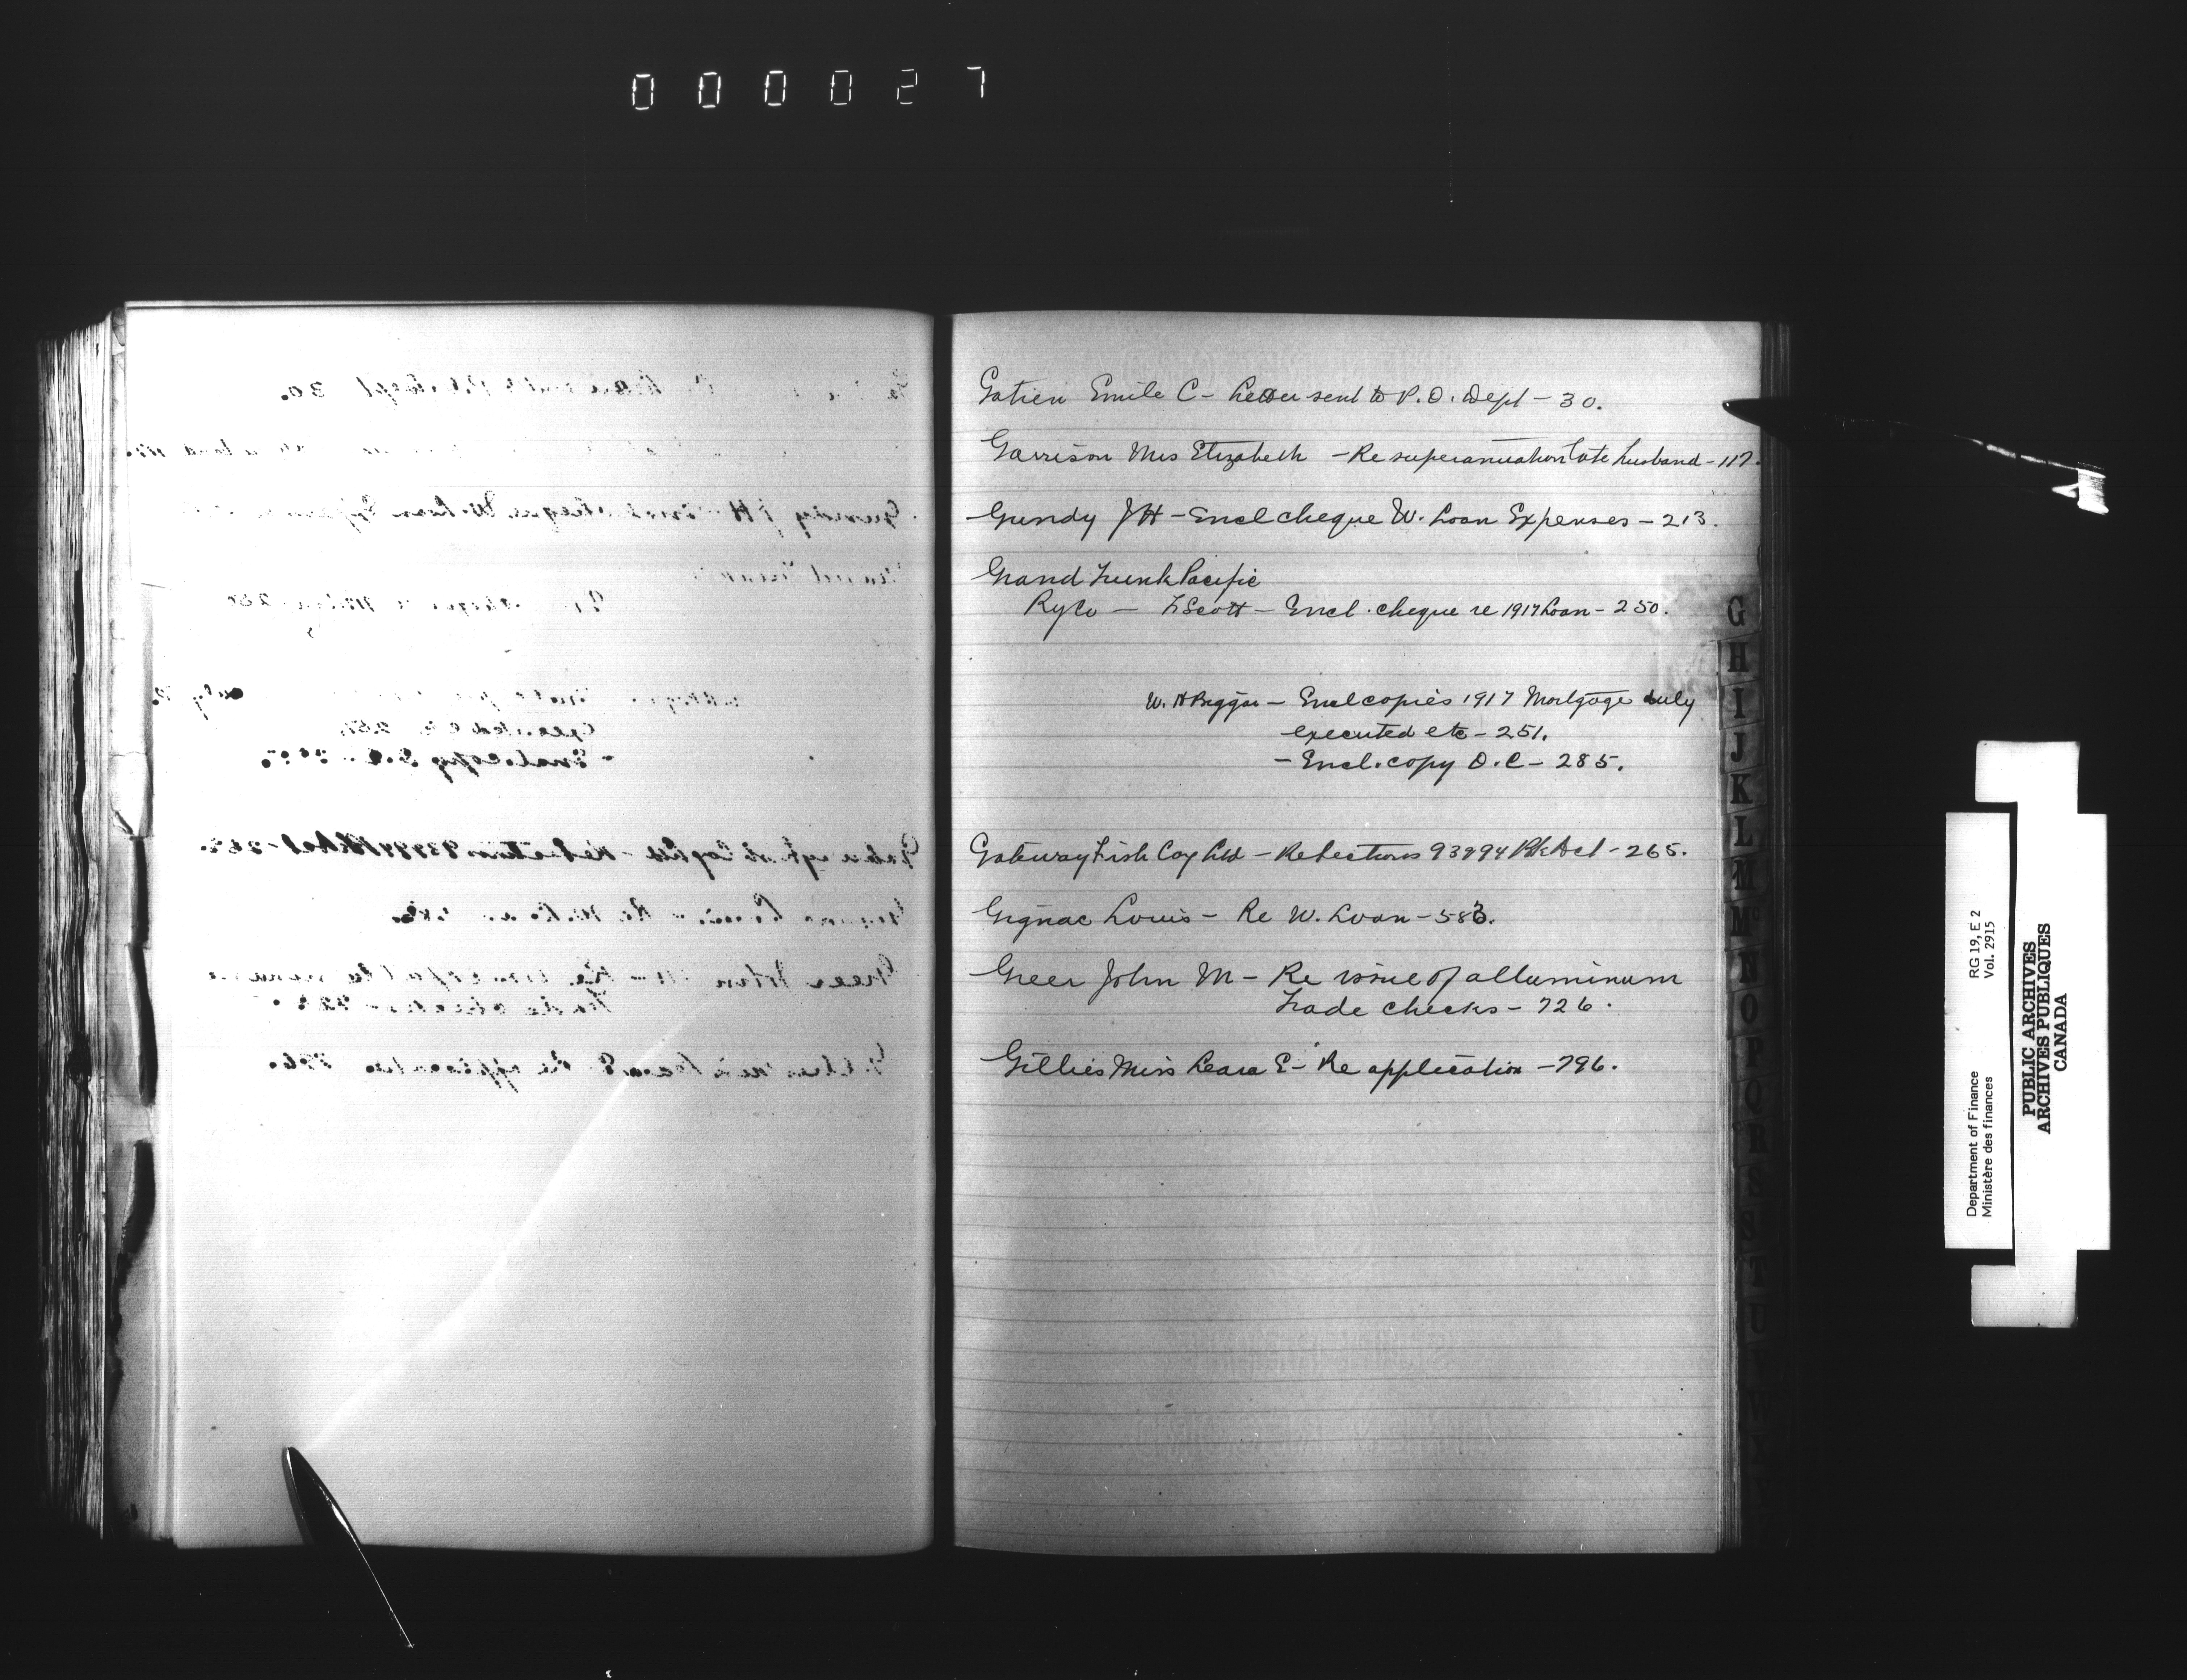 000027
Gatien Emile C - Letter sent to P.O. Dept - 30.
Garrison Mrs Elizabeth - Re superanuation late husband - 117.
Gundy J H - Encl cheque W. Loan Expenses - 213.
Grand Trunk Pacific
Ry Co - F Scott - Encl. cheque re 1917 Loan - 250.
W. H Biggar - Encl copies 1917 Mortgage duly
executed etc - 251.
- Encl. copy O.C - 285.
Gateway Fish Coy Ltd - Re Sections 93 & 94 Bk Act - 265.
Gignac Louis - Re W. Loan - 583.
Greer John M - Re issue of alluminum
Trade checks - 726.
Gillies Miss Leara E - Re application - 796.
G
H
I
J
K
L
M
Mc
N
O
P
Q
R
S
T
U
Department of Finance RG 19, E 2
Ministère des finances Vol. 2915
PUBLIC ARCHIVES
ARCHIVES PUBLIQUES
CANADA